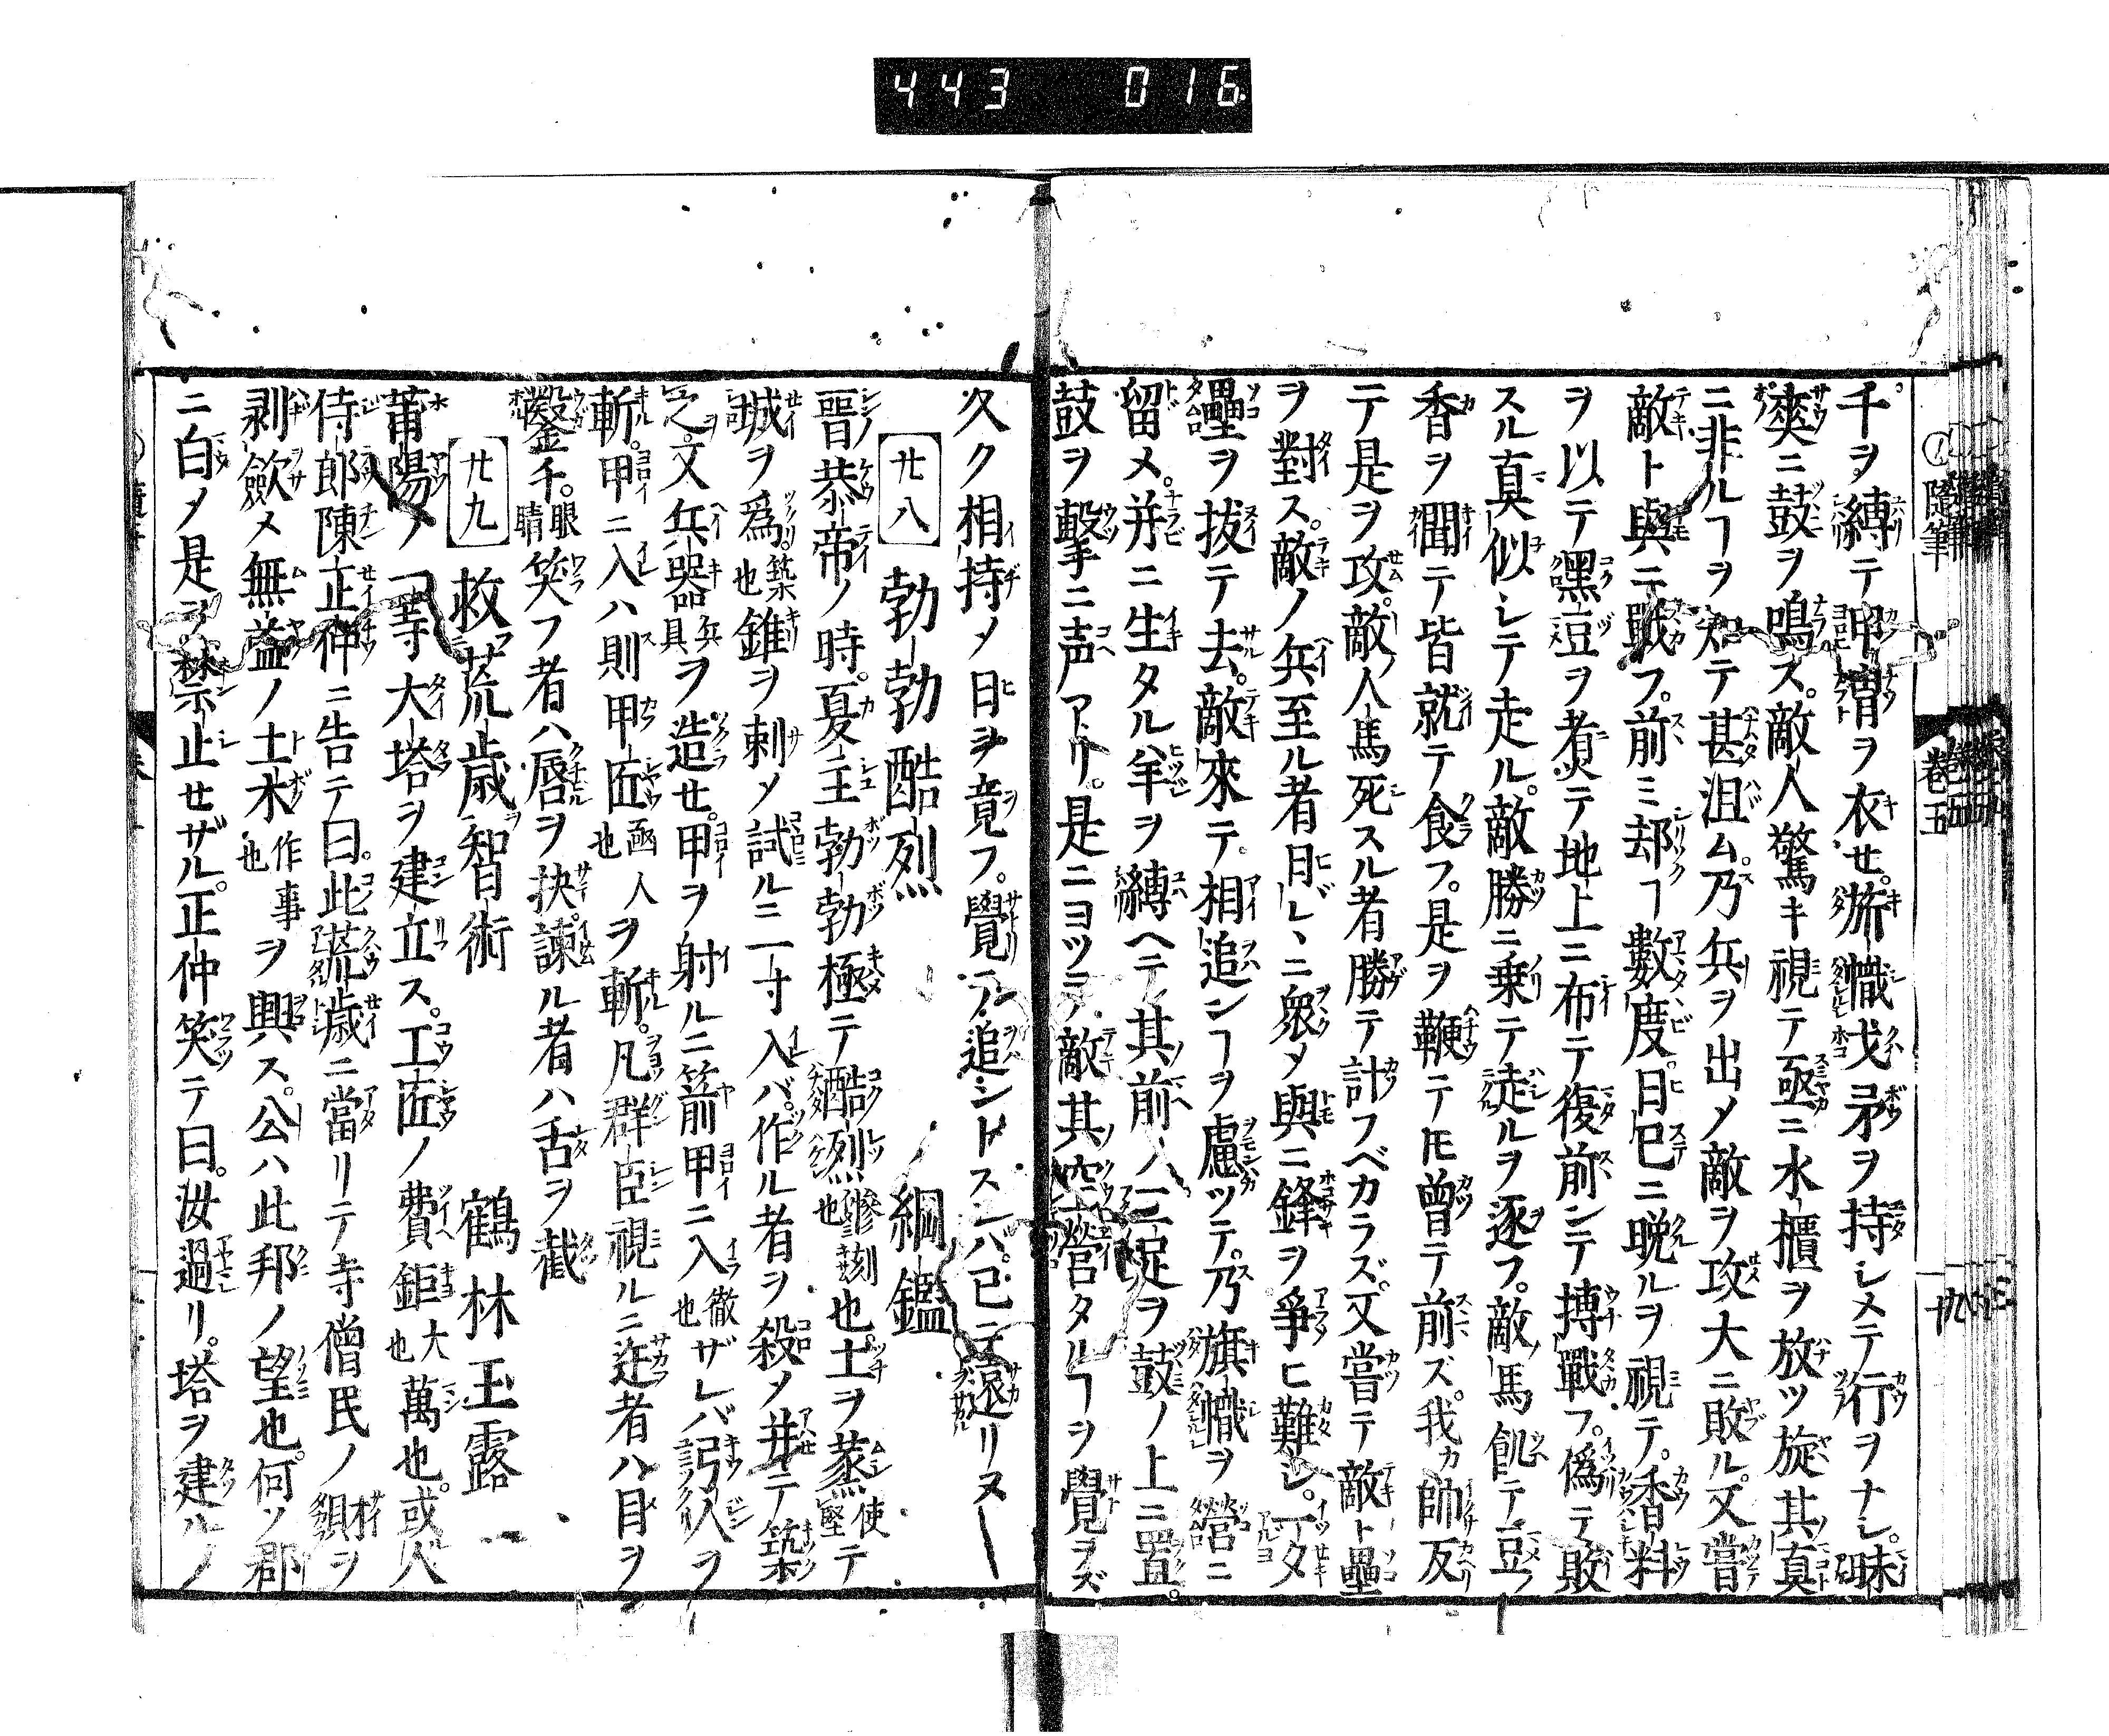 443 016
隨筆 卷五 十
千ヲ縛テ甲冑ヲ衣セ。旂幟戈矛ヲ持シメテ行ヲナシ。昧
爽ニ鼓ヲ鳴ス。敵人驚キ視テ亟ニ水櫃ヲ放ツ旋其真
ニ非ルヿヲ知テ甚沮ム。乃兵ヲ出〆敵ヲ攻大ニ敗ル。又嘗
敵ト與ニ戰フ。前ミ却ヿ數度。日已ニ晚ルヲ視テ。香料
ヲ以テ黑豆ヲ煑テ地上ニ布テ復前ンテ搏戰フ。偽テ敗
スル真似シテ走ル。敵勝ニ乗テ走ルヲ逐フ。敵ノ馬飢テ豆ノ
香ヲ聞テ皆就テ食フ。是ヲ鞭テ𪜈曾テ前ズ。我カ師反
テ是ヲ攻。敵ノ人馬死スル者勝テ計フベカラズ。又嘗テ敵ト壘
ヲ對ス。敵ノ兵至ル者日ヾレヽニ衆〆與ニ鋒ヲ爭ヒ難シ。一タ
壘ヲ拔テ去。敵來テ相追ンヿヲ慮ツテ。乃旗幟ヲ營ニ
留メ。并ニ生タル羊ヲ縛ヘテ其前ノ二足ヲ鼓ノ上ニ置。
鼓ヲ擊ニ声アリ。是ニヨツテ敵其空營タルヿヲ覺ヲズ
久ク相持〆日ヲ竟フ。覺テ追ントスレバ已ニ遠リヌ
廿八 勃勃酷烈 綱鑑
晉恭帝ノ時。夏主勃勃極テ酷烈慘刻也也。土ヲ蒸使堅テ
城ヲ爲。築也錐ヲ刺〆試ル二一寸入バ。作ル者ヲ殺〆并テ築
之。文兵器兵具ヲ造セ。甲ヲ射ル二箭甲ニ入徹也ザレバ弓人ヲ
斬。甲ニ入ハ則甲匠函人也ヲ斬。凡群臣視ルニ迕者ハ目ヲ
鑿千。眼睛笑フ者ハ唇ヲ抉。諫ル者ハ舌ヲ截
廿九 救荒歲智術 鶴林玉露
莆陽ノ一寺大塔ヲ建立ス。工匠ノ費鉅大也萬也。或人
侍郎陳正仲ニ告テ曰。此荒歲ニ當リテ寺僧民ノ財ヲ
剥歛メ無益ノ土木作事也ヲ興ス。公ハ此邦ノ望也。何ソ郡
ニ白〆是ヲ禁止セザル。正仲笑テ曰。汝過リ。塔ヲ建ルノ